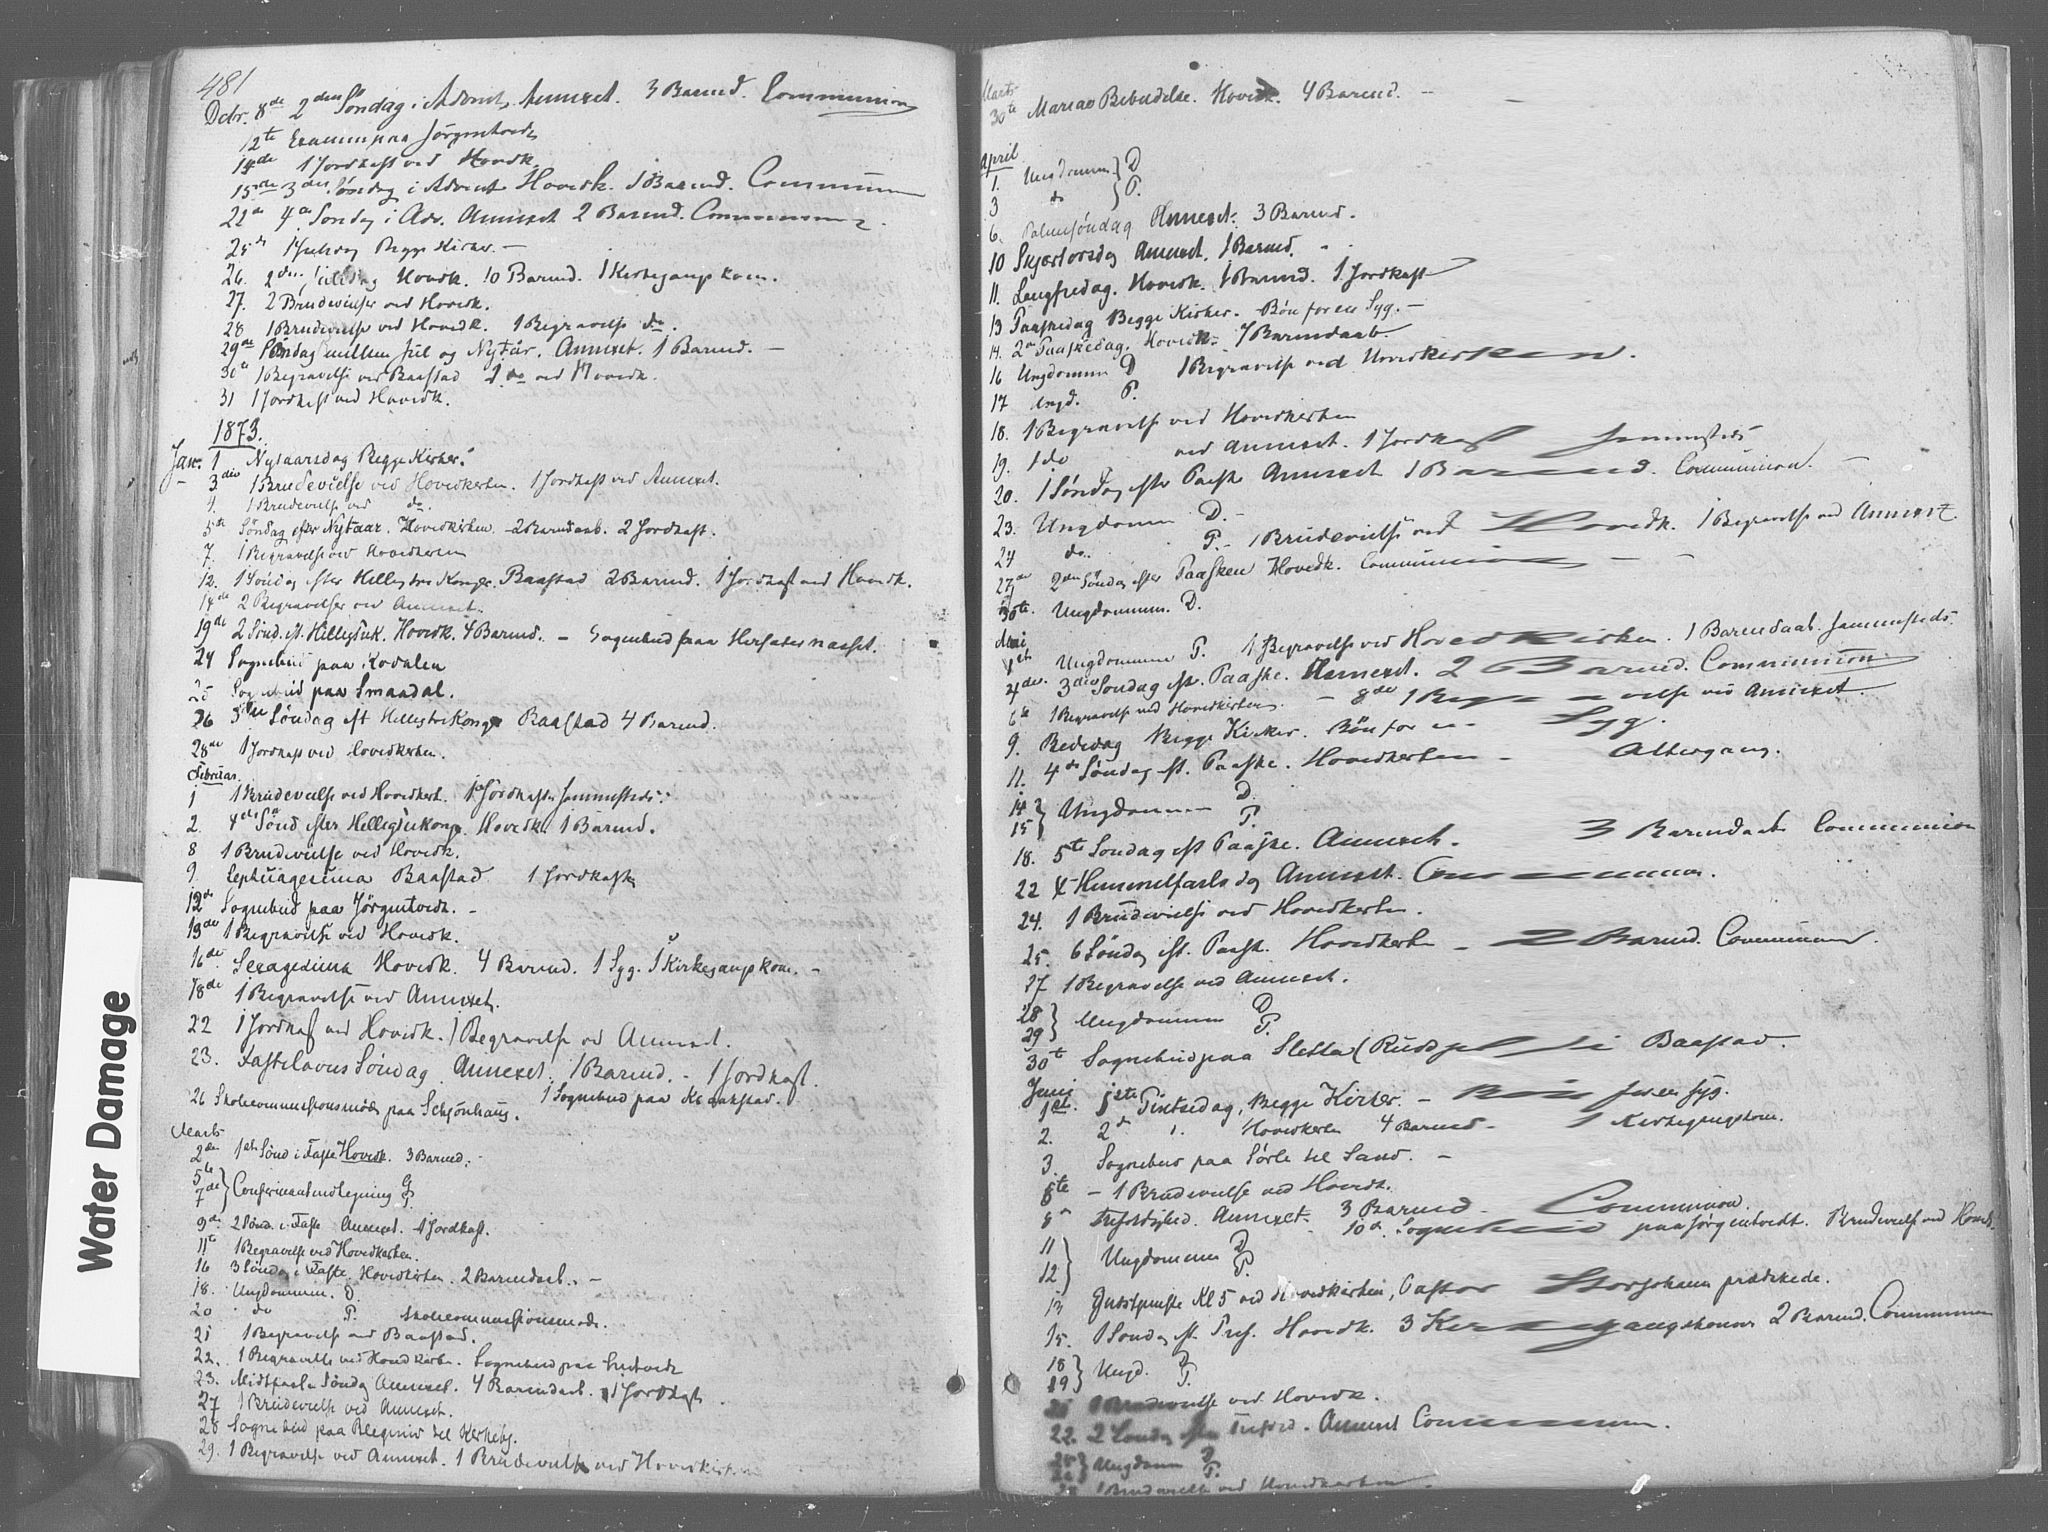 481
Dcbr. 8de 2den Søndag i Advent. Annexet. 3 Barnd. Communion
12te Examen paa Jørgentvedt
14de 1 Jordkast ved Hovedk.
15de 3die Søndag i Advent Hovedk. 1 Barnd. Communion
22de 4de Søndag i Adv. Annexet 2 Barnd. Communion
25de 1 Juledag Begge Kirker. –
26. 2den Juledag Hovedk. 10 Barnd. 1 Kirkegangskone.
27. 2 Brudevielser ved Hovedk.
28 1 Brudevielse ved Hovedk. 1 Begravelse do.
29de Søndag mellem Jul og Nytår. Annexet. 1 Barnd. –
30te 1 Begravelse ved Baastad 1 do ved Hovedk.
31 1 Jordkast ved Hovedk.
1873.
Jan. 1 Nytaarsdag Begge Kirker.
3die 1 Brudevielse ved Hovedkirken. 1 Jordkast ved Annexet.
4. 1 Brudevielse ved do.
5te Søndag efter Nytaar. Hovedkirken – 2 Barndaab. 2 Jordkast.
7. 1 Begravelse ved Hovedkirken
12. 1 Søndag efter Helligtrekonger. Baastad 2 Barnd. 1 Jordkast ved Hovedk.
14de 2 Begravelser ved Annexet.
19de 2 Sønd. eft. Helligtrek. Hovedk. 4 Barnd. – Sognebud paa
24 Sognebud paa Kodalen
25 Sognebud paa Smaadal.
26 3die Søndag eft Helligtrekonger Baastad 4 Barnd.
28de 1 Jordkast ved Hovedkirken.
Februar.
1 1 Brudevielse ved Hovedkirk. 1 Jordkast Sammesteds.
2. 4de Sønd efter Helligtrekong. Hovedk. 1 Barnd.
8 1 Brudevielse ved Hovedk.
9. Septuagesima Baastad 1 Jordkast
12de Sognebud paa Jørgentvedt. –
13de 1 Begravelse ved Hovedk.
16de Sexagesima Hovedk. 4 Barnd. 1 Syg. 1 Kirkegangskone. –
18de 1 Begravelse ved Annexet.
22 1 Jordkast ved Hovedk. 1 Begravelse ved Annexet.
23. Fastelavns Søndag. Annexet. 1 Barnd. – 1 Jordkast.
26 Skolecommissionsmøde paa Schjønhaug. 1 Sognebud paa
Marts
2den 1ste Sønd i Faste Hovedk. 3 Barnd. –
5te
7de } Confirmantindtegning
9de 2 Sønd. i Faste Annexet. 1 Jordkast.
11te 1 Begravelse ved Hovedkirken.
16 3 Søndag i Faste. Hovedkirken. 2 Barndaab. –
18. Ungdommen. D.
20 do P. Skolecommissionsmøde.
21 1 Begravelse ved Baastad.
22. 1 Begravelse ved Hovedkirken. Sognebud paa
23. Midfaste Søndag Annexet. 4 Barndaab. 1 Jordkast
27 1 Brudevielse ved Annexet.
28 Sognebud paa
29. 1 Begravelse ved Annexet. 1 Brudevielse ved Hovedkirken
Marts
30te Mariæ Bebudelse. Hovedk. 4 Barnd. –
April
1. Ungdommen } D
3 do } P.
6. Palmesøndag Annexet. 3 Barnd.
10 Skjærtorsdag Annexet. 1 Barnd.
11. Langfredag. Hovedk. 1 Barnd. 1 Jordkast
13 Paaskedag Begge Kirker. Bøn for en Syg. –
14. 2den Paaskedag. Hovedk. 7 Barndaab.
16 Ungdommen D 1 Begravelse ved Hovedkirken.
17 Ungd. P.
18. 1 Begravelse ved Hovedkirken
19. 1 do ved Annexet. 1 Jordkast Sammesteds
20. 1 Søndag efter Paaske Annexet 1 Barnd. Communion. –
23. Ungdommen D. –
24 do. P. – 1 Brudevielse ved Hovedk. 1 Begravelse ved Annexet.
27de 2den Søndag efter Paasken Hovedk. Communion –
30te. Ungdommen. D.
Mai
1ste Ungdommen P. 1 Begravelse ved Hovedkirken. 1 Barndaab. Sammesteds.
4de. 3die Søndag eft. Paaske. Annexet. 2 Barnd. Communion.
6te 1 Begravelse ved Hovedkirken. – 8de 1 Begravelse ved Annexet.
9. Bededag Begge Kirker. Bøn for en Syg.
11. 4de Søndag eft. Paaske. Hovedkirken – Altergang.
14
15 } Ungdommen D. P.
18. 5te Søndag eft Paaske. Annexet. 3 Barndaab Communion
22 Himmelfartsdag Annexet. Communion.
24. 1 Brudevielse ved Hovedkirken.
25. 6 Søndag eft. Paaske. Hovedkirken – 2 Barnd. Communion.
27 1 Begravelse ved Annexet.
28
29 } Ungdommen D P.
30te Sognebud paa Sletta i Baastad.
Juni
1ste. 1ste Pintsedag, Begge Kirker. – Bøn for en Syg.
2. 2den Hovedkirken 4 Barnd. 1 Kirkegangskone.
3. Sognebud paa Sørli til Sand. –
6te – 1 Brudevielse ved Hovedk.
8de Trefoldighed. Annexet. 3 Barnd. Communion.
10de Sognebud paa Jørgentvedt. Brudevielse ved Hovedk.
11
12 } Ungdommen D P.
13 Gudstjeneste Kl 5 ved Hovedkirken, Pastor Storjohann prædikede.
15. 1 Søndag eft. Tref. Hovedk. 3 Kirkegangskoner 2 Barnd. Communion
18
19 } Ungd. D P.
1 Brudevielse ved Hovedk.
22. 2 Søndag efter Trefold. Annexet Communion.
Ungdom D P.
1 Brudevielse ved Hovedkirken.
Water Damage